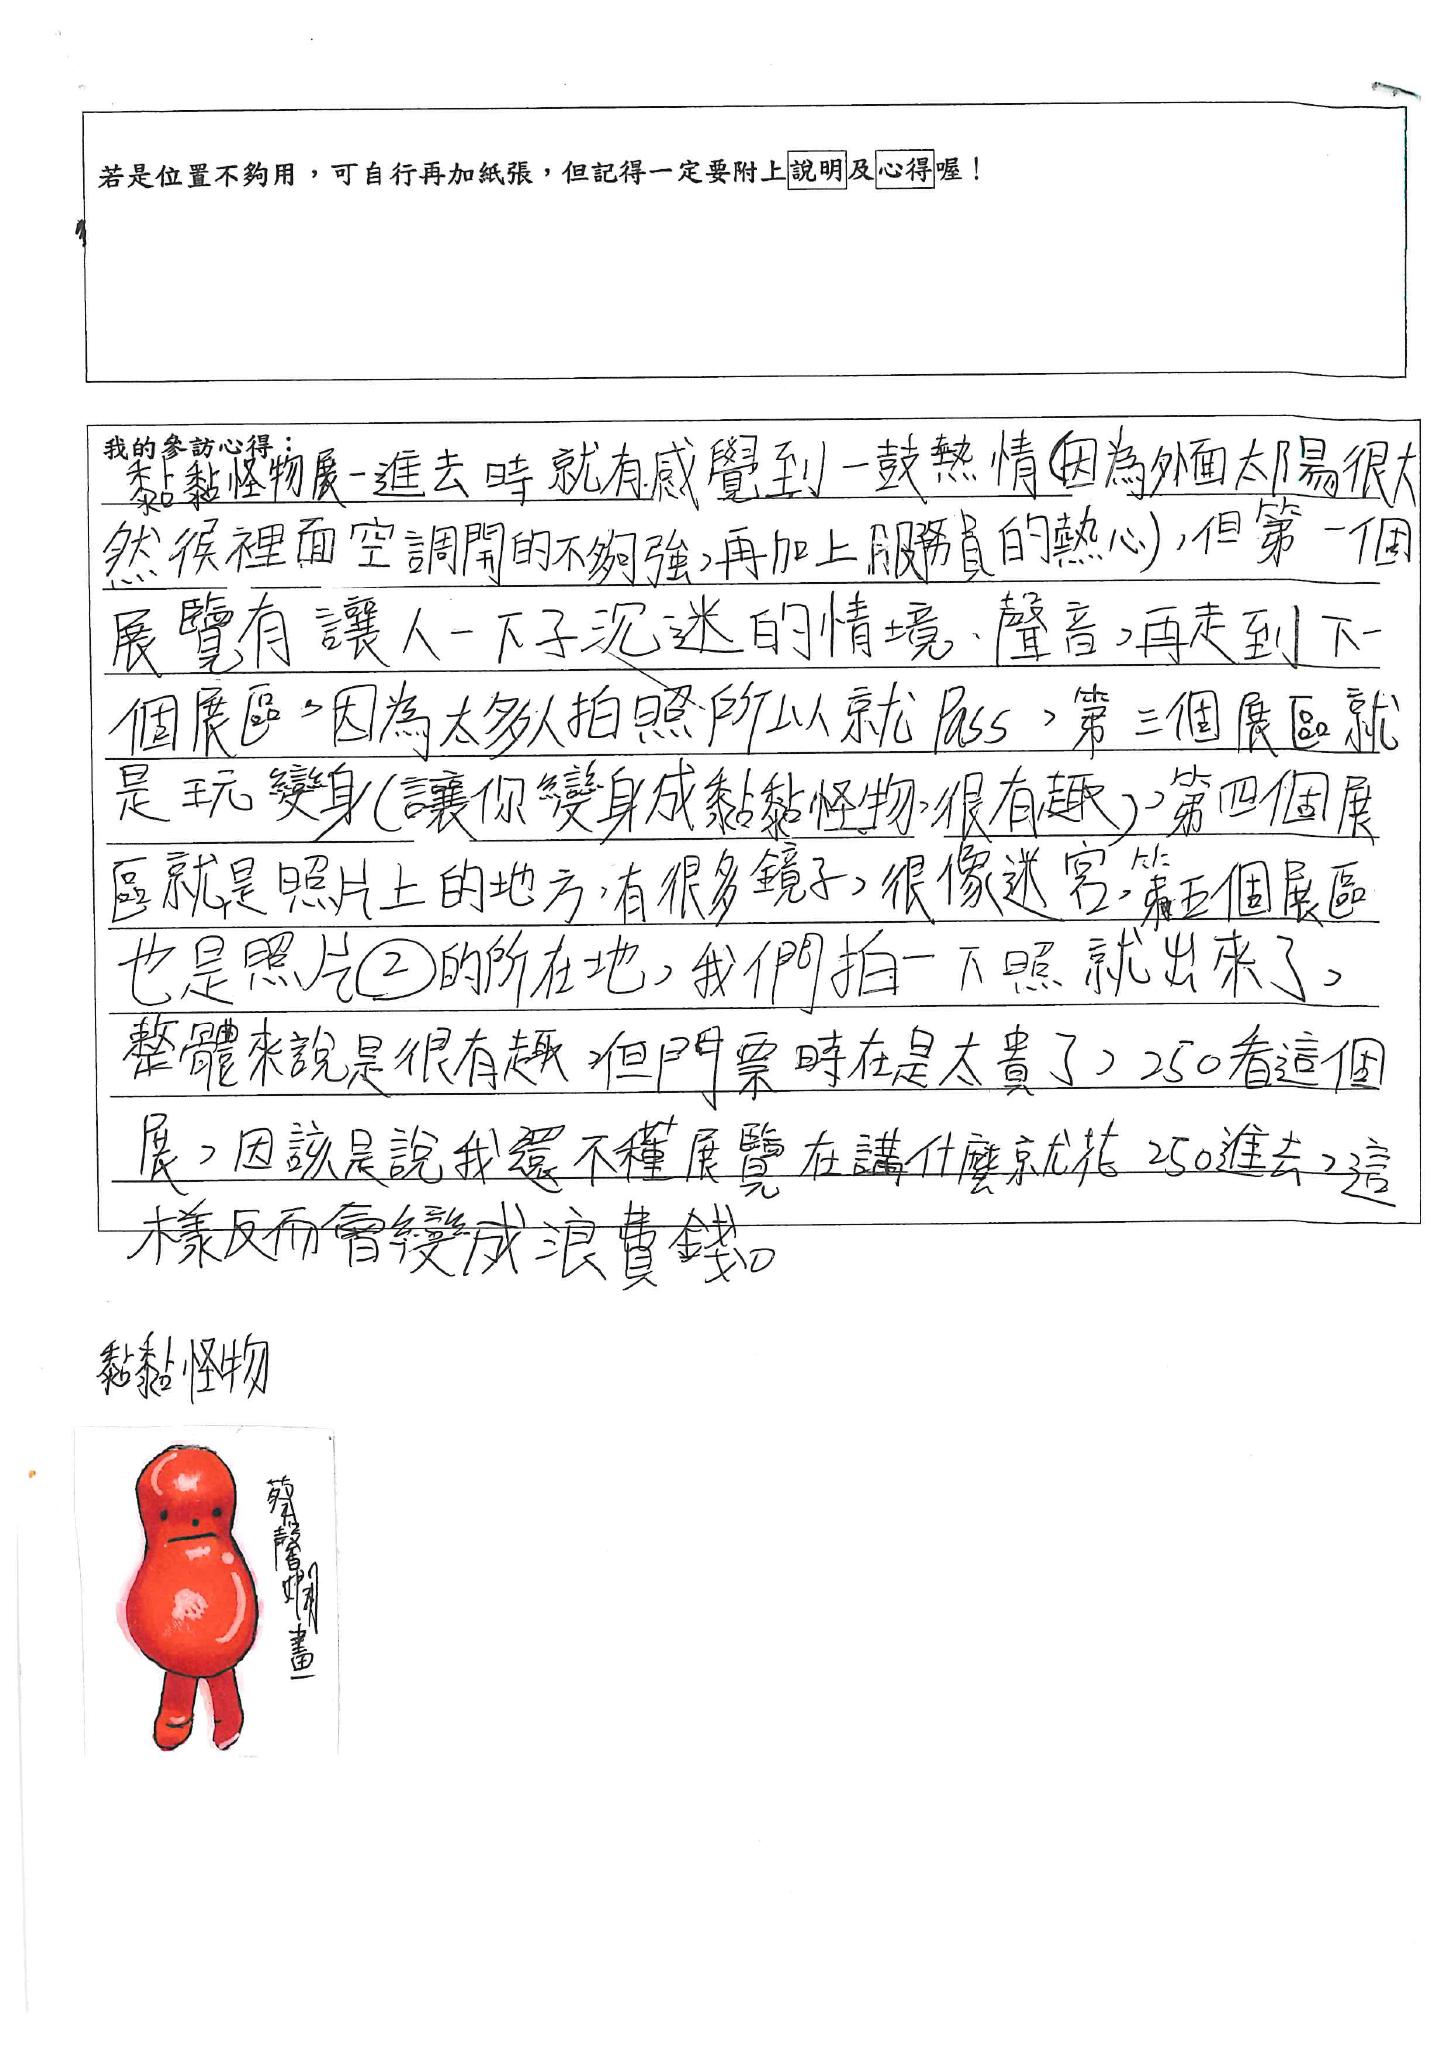 若是位置不夠用，可自行再加紙張，但記得一定要附上說明及心得喔！
我的參訪心得：
黏黏怪物展一進去時就有感覺到一鼓熱情(因為外面太陽很大
然後裡面空調開的不夠強，再加上服務員的熱心)，但第一個
展覽有讓人一下子沉迷的情境、聲音，再走到下一
個展區，因為太多人拍照所以就Pass，第三個展區就
是玩變身(讓你變身成黏黏怪物，很有趣)，第四個展
區就是照片上的地方，有很多鏡子，很像迷宮，第五個展區
也是照片②的所在地，我們拍一下照就出來了，
整體來說是很有趣，但門票時在是太貴了，250看這個
展，因該是說我還不懂展覽在講什麼就花250進去，這
樣反而會變成浪費錢。
黏黏怪物
蔡馨嫻畫